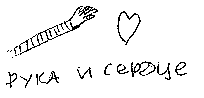 рука и сердце